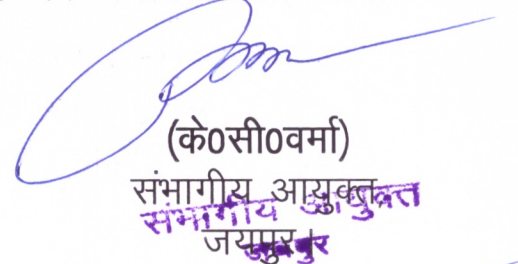 (के0सी0वर्मा)
संभागीय आयुक्त
संभागीय आयुक्त
जयपुर।
जयपुर